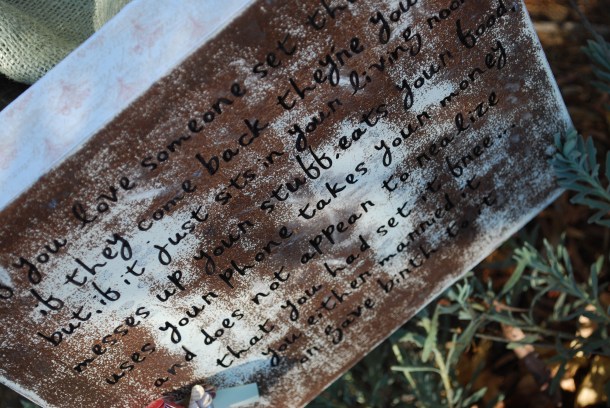 you love someone set th
if they come back they're you
but if it just sits in your living roo
messes up your stuff. eats your food,
uses your phone takes your money
and does not appear to realize
that you had set it free...
you either married it
or gave birth to it